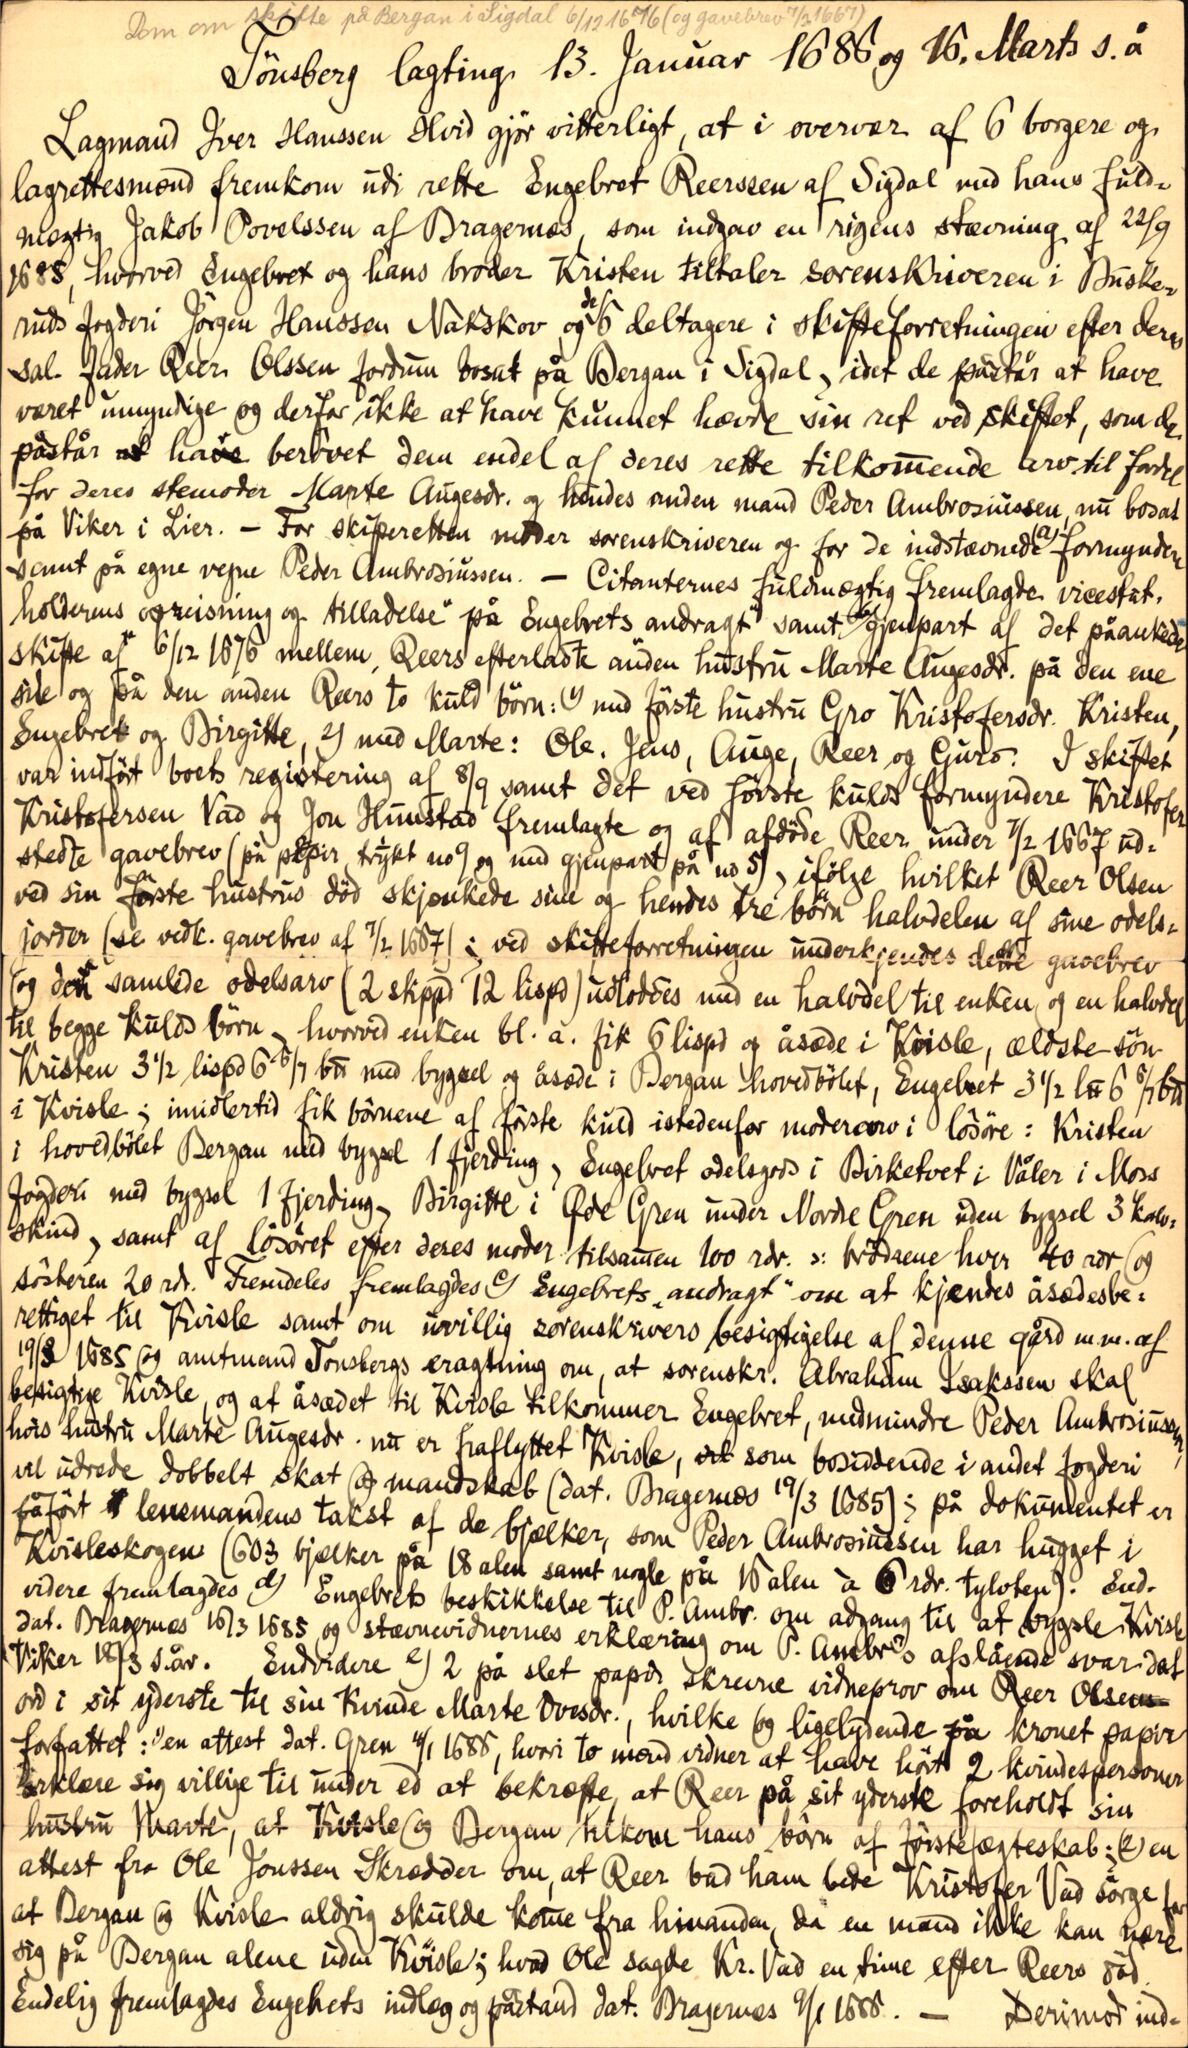 Dom om skifte på Bergan i Sigdal 6/12 1676 (og gavebrev 7/2 1667)
Tönsberg lagting 13. Januar 1686 og 16. Marts s. å
Lagmand Iver Hanssen Hvid gjör vitterligt, at i overvær af 6 borgere og
lagrettesmænd fremkom udi rette Engebret Reerssen af Sigdal med hans fuld-
mægtig Jakob Povelssen af Bragernæs, som indgav en rigens stævning af 22/9
1685, hvorved Engebret og hans broder Kristen tiltaler sorenskriveren i Buske-
ruds fogderi Jörgen Hanssen Nakskov og de 6 deltagere i skifteforretningen efter deres
sal. fader Reer Olssen fordum bosat på Bergan i Sigdal, idet de påstår at have
været umyndige og derfor ikke at have kunnet hævde sin ret ved skiftet, som de
påstår at have berövet dem endel af deres rette tilkommende arv til fordel
for deres stemoder Marte Augesdr. og hendes anden mand Peder Ambrosiussen, nu bosat
på Viker i Lier. – For skifteretten möder sorenskriveren og for de indstævnede formyndere
samt på egne vegne Peder Ambrosiussen. – Citanternes fuldmægtig fremlagde a) vicestat-
holderens opreisning og tilladelse" på Engebrets andragt" samt b) gjenpart af det påankede
skifte af 6/12 1676 mellem Reers efterladte anden hustru Marte Augesdr. på den ene
side og på den anden Reers to kuld börn: 1) med förste hustru Gro Kristofersdr. Kristen,
Engebret og Birgitte, 2) med Marte: Ole, Jens, Auge, Reer og Guro. I skiftet
var indfört boets registering af 8/9 samt det ved förste kulds formyndere Kristofer
Kristofersen Vad og Jon Hunstad fremlagte og af afdöde Reer under 7/2 1667 ud-
stedte gavebrev (på papir trykt no 9 og med gjenpart på no 5), ifölge hvilket Reer Olsen
ved sin förste hustrus död skjænkede sine og hendes tre börn halvdelen af sine odels-
jorder (se vedk. gavebrev af 7/2 1667); ved skifteforretningen underkjendes dette gavebrev
og den samlede odelsarv (2 skippd 12 lispd) udloddes med en halvdel til enken og en halvdel
til begge kulds börn, hvorved enken bl. a. fik 6 lispd og åsæde i Kvisle, ældste sön
Kristen 3 1/2 lispd 6 6/7 bm med bygsel og åsæde i Bergan hovedbölet, Engebret 3 1/2 lm 6 6/7 bm
i Kvisle; imidlertid fik börnene af förste kuld istedenfor modernarv i lösöre: Kristen
i hovedbölet Bergan med bygsel 1 fjerding, Engebret odelsgods i Birketvet i Våler i Moss
fogderi med bygsel 1 fjerding, Birgitte i Øde Gren under Nordre Gren uden bygsel 3 kalv-
skind, samt af lösöret efter deres moder tilsammen 100 rdr. ɔ: brödrene hver 40 rdr og
sösteren 20 rdr. Fremdeles fremlagdes c) Engebrets "andragt" om at kjendes åsædesbe-
rettiget til Kvisle samt om uvillig sorenskrivers besigtigelse af denne gård m.m. af
19/3 1685 og amtmand Tonsbergs eragtning om, at sorenskr. Abraham Isakssen skal
besigtige Kvisle, og at åsædet til Kvisle tilkommer Engebret, medmindre Peder Ambrosiussen,
hvis hustru Marte Augesdr. nu er fraflyttet Kvisle, som bosiddende i andet fogderi
vil udrede dobbelt skat og mandskab (dat. Bragernæs 19/3 1685); på dokumentet er
påfört lensmandens takst af de bjælker, som Peder Ambrosiussen har hugget i
Kvisleskogen (603 bjælker på 18 alen samt nogle på 16 alen à 6 rdr. tylvten). End-
videre fremlagdes d) Engebrets beskikkelse til P. Ambr. om adgang til at bygsle Kvisle
dat. Bragernæs 16/3 1685 og stævnevidnernes erklæring om P. Ambr's afslående svar dat
Viker 18/3 s. år. Endvidere e) 2 på slet papir skrevne vidneprov om Reer Olsens
ord i sit yderste til sin kvinde Marte Ovesdr., hvilke og ligelydende på kronet papir
forfattet: 1) en attest dat. Gren 4/1 1686, hvori to mænd vidner at have hört 2 kvindespersoner
erklære sig villige til under ed at bekræfte, at Reer på sit yderste foreholdt sin
hustru Marte, at Kvisle og Bergan tilkom hans börn af förste ægteskab; 2) en
attest fra Ole Jonssen Skrædder om, at Reer bad ham bede Kristofer Vad sörge for
at Bergan og Kvisle aldrig skulde komme fra hinanden, da en mand ikke kan nære
sig på Bergan alene uden Kvisle; hvad Ole sagde Kr. Vad en time efter Reers död.
Endelig fremlagdes Engebrets indlæg og påstand dat. Bragernæs 9/1 1686. – Derimod ind-